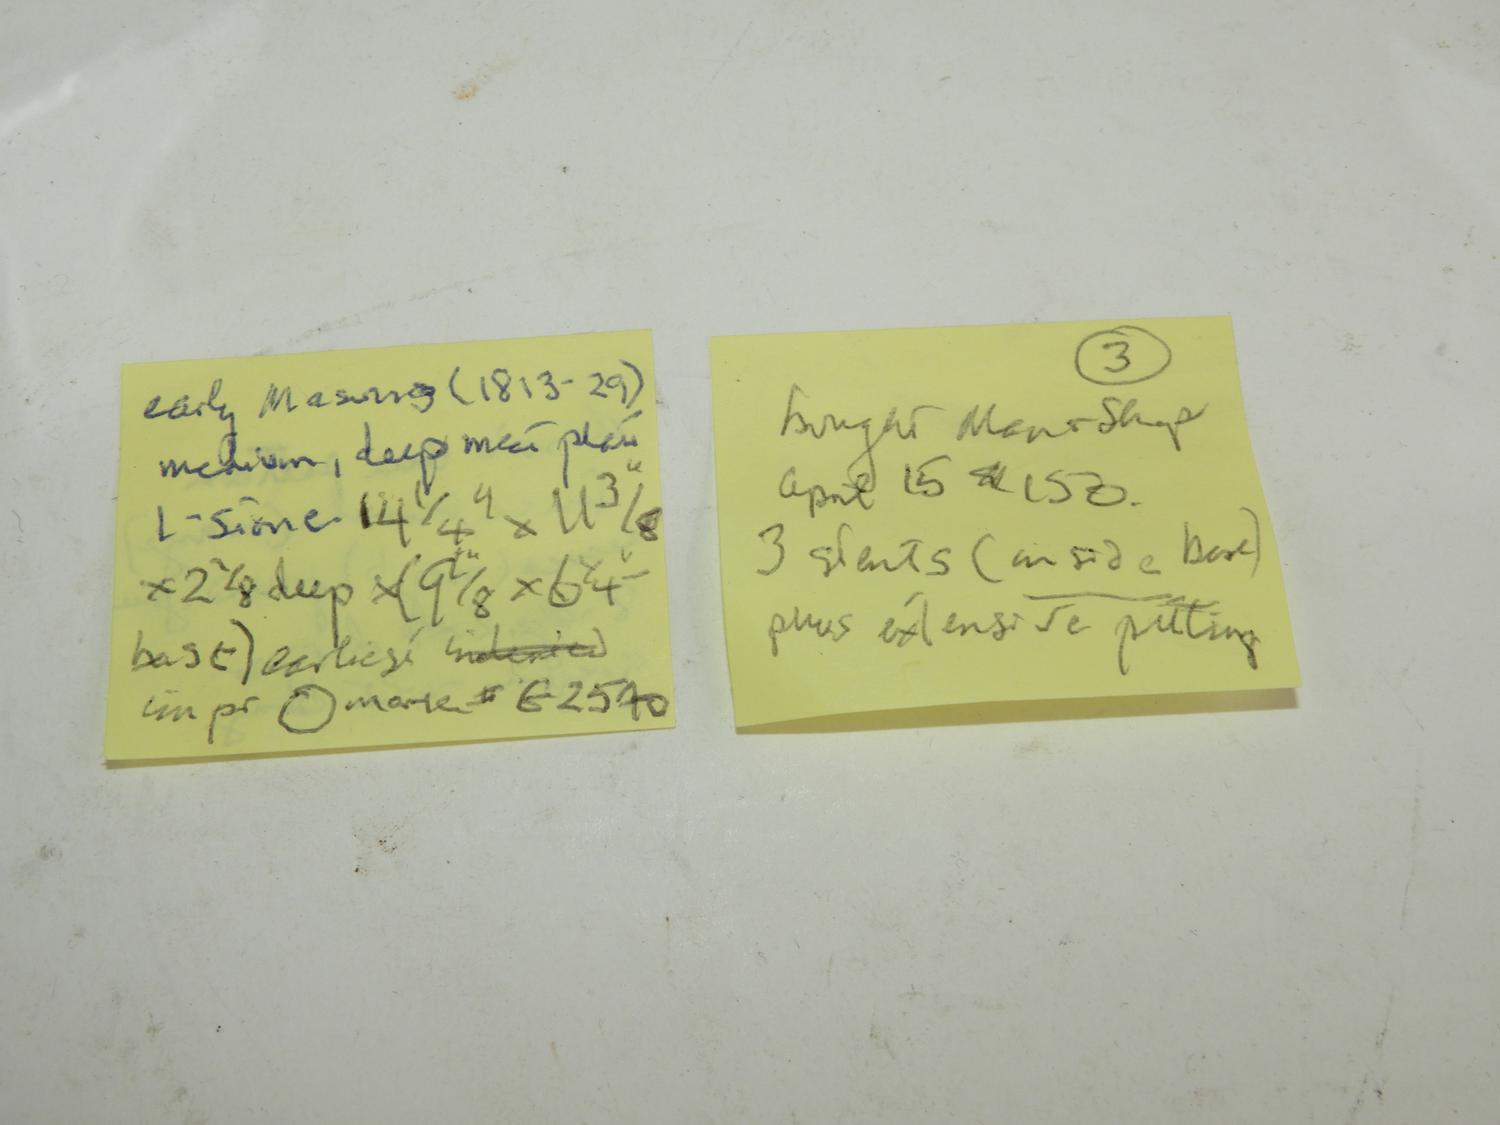 early Masons (1813-29)
medium, deep meat plate
I-stone 14 1/4" x 11 3/8"
x 2 1/8 deep x (9 1/8" x 6 1/4"
base) earliest
impr ◯ mark
3
bought Manor Shop
April 15 150.
3 stents (inside base)
plus extensive pitting